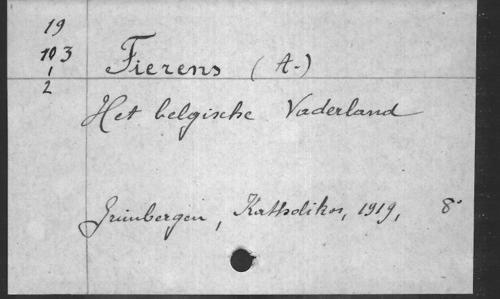 19
103
1
2
Fierens (A-)
Het belgische Vaderland
Grimbergen, Katholikos, 1919, 8°